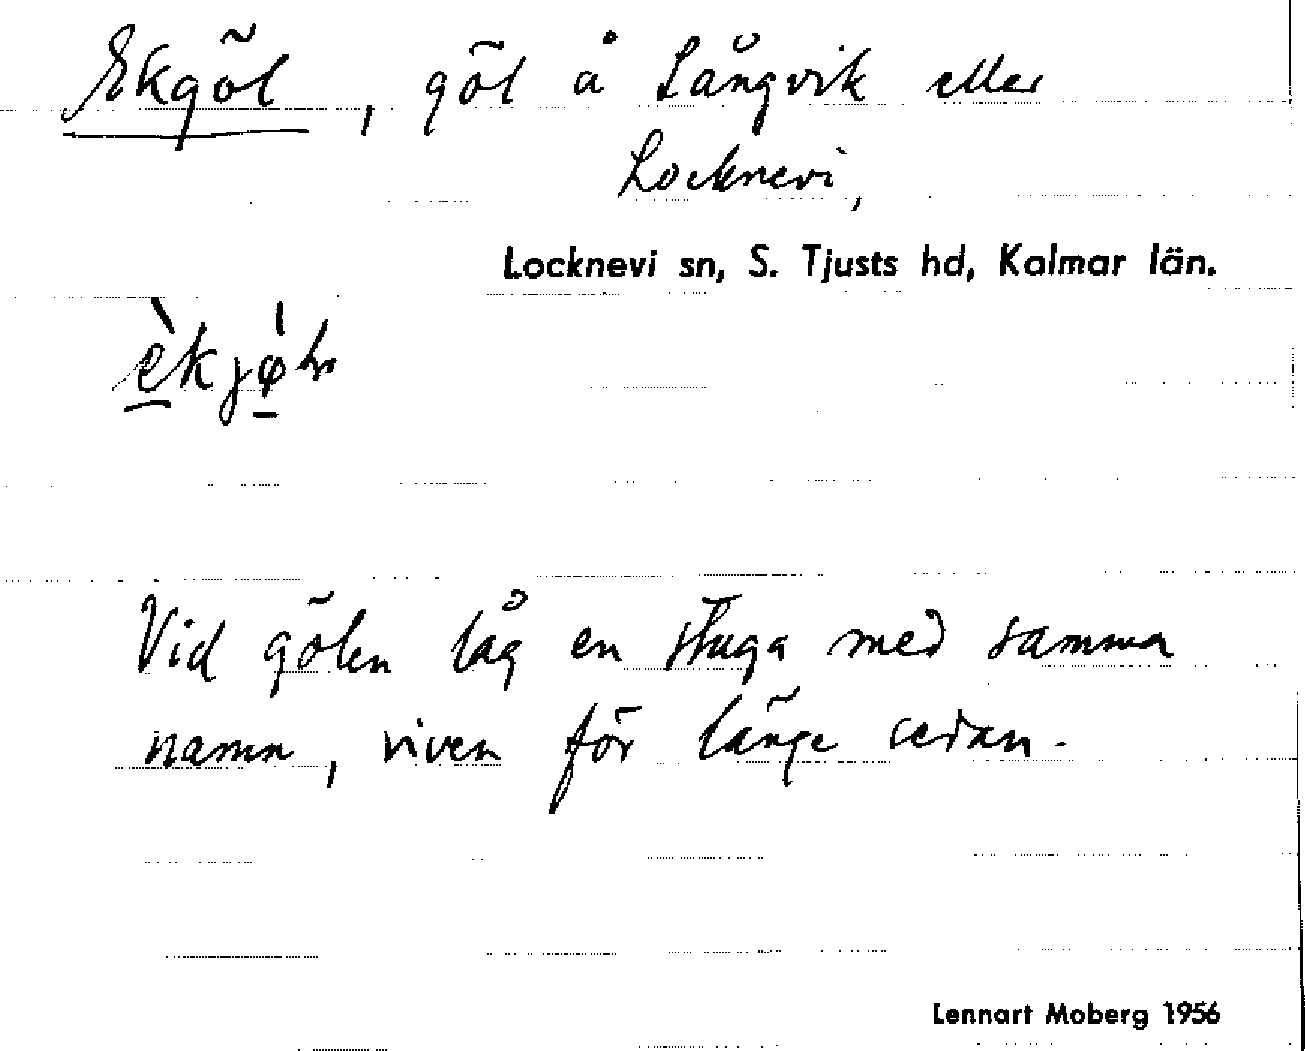 Ekgöl, göl å Långvik eller
Locknevi,
Locknevi sn, S. Tjusts hd, Kalmar län.
Vid gölen låg en stuga med samma
namn, riven för länge sedan.
Lennart Moberg 1956